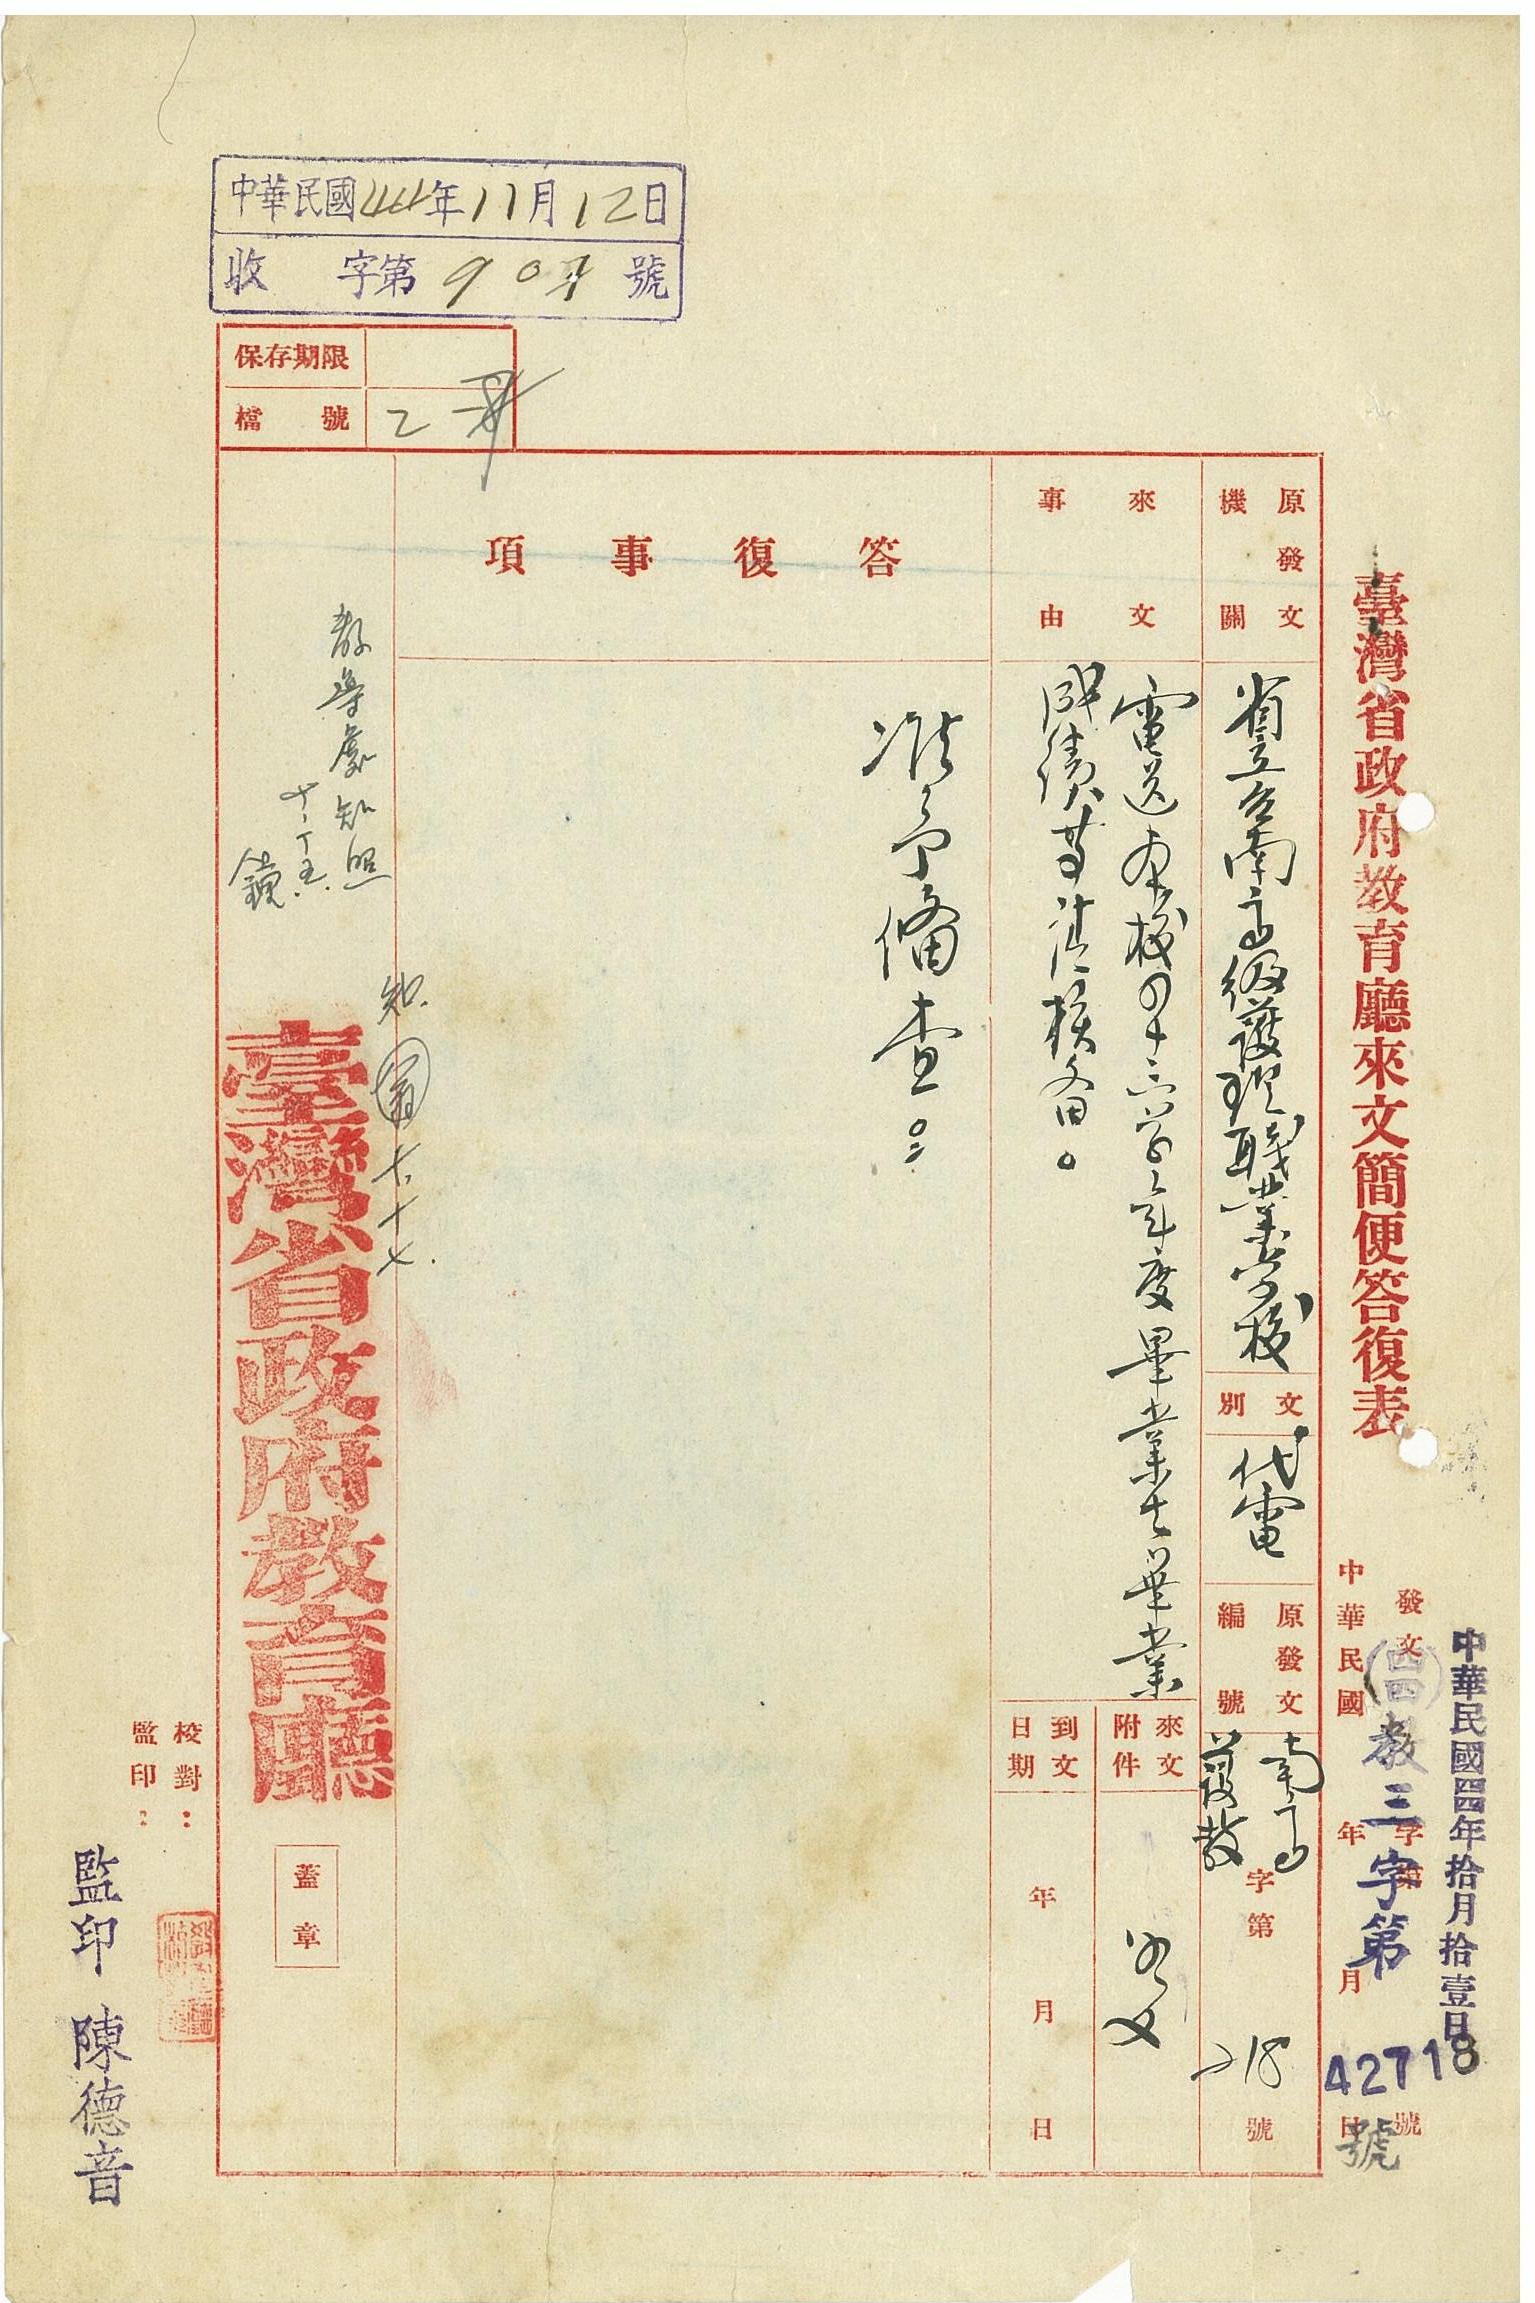 臺灣省政府教育廳來文簡便答復表
中華民國四四年拾月拾壹日
發文 字第 號
(四四)教三字第42718號
中華民國 年 月 日
原發文機關
省立台南高級護理職業學校
文別
代電
原發文編號
南高護教字第218號
來文事由
電送本校四十三學年度畢業生畢業
成績等請核備。
來文附件
到文日期
年 月 日
答復事項
准予備查。
中華民國44年11月12日
收 字第 號
保存期限
檔號
乙
教導處知照
知
臺灣省政府教育廳
蓋章
校對：
監印：
監印 陳德音